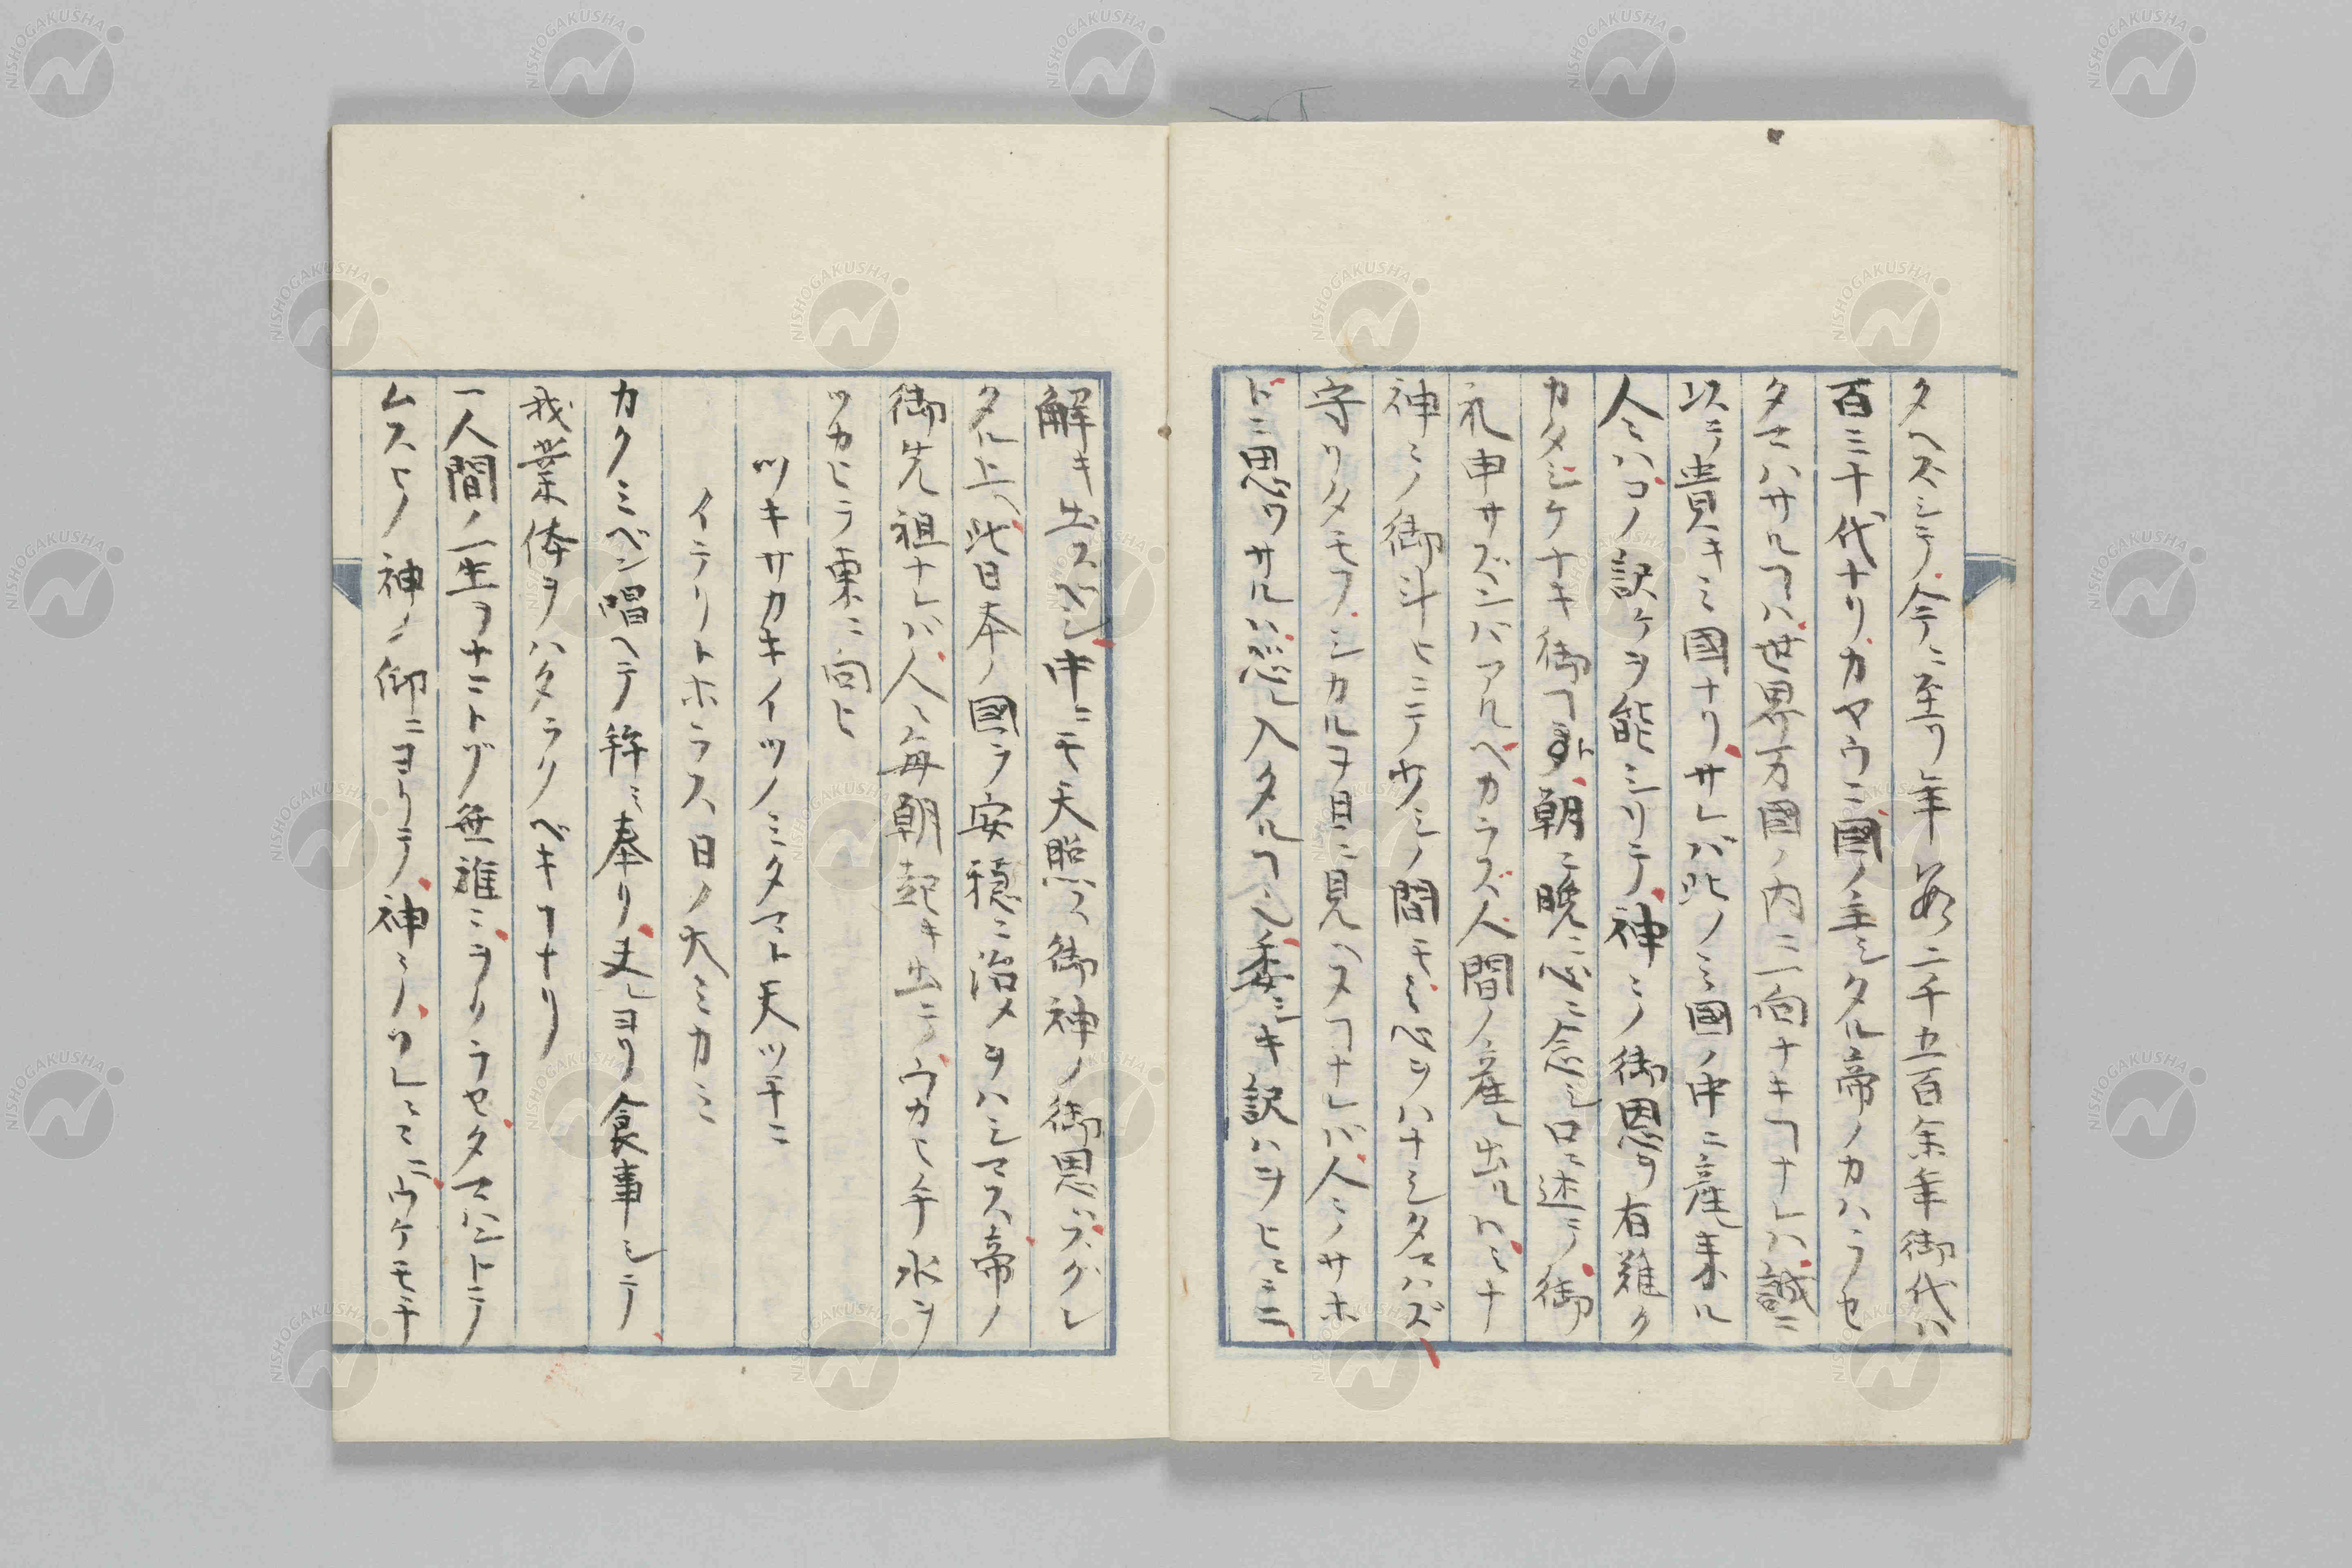 タヘズシテ今ニ至リ年数二千五百余年御代ハ
百三十代ナリカヤウニ國ノ主シタル帝ノカハラセ
タマハサルヿハ世界万國ノ内ニ一向ナキヿナレハ誠ニ
以テ貴キミ國ナリサレバ此ノミ國ノ中ニ産レ来ル
人〻ハコノ訳ケヲ能シリテ神〻ノ御恩ヲ有難ク
カタシケナキ御ヿト朝ニ晩ニ心ニ念シ口ニ述テ御
礼申サズンバアルベカラズ人間ノ産レ出ルハミナ
神〻ノ御斗ヒニテサシノ間モ〻心ヲハナシタマハズ
守リタモフシカルヲ目ニ見ヘヌヿナレバ人〻サホ
ドニ思ワサルハ恐レ入タルヿ也委シキ訳ハヲヒ〻ニ
解キ出スベシ中ニモ天照ス御神ノ御恩ハスグレ
タル上ヘ此日本ノ國ヲ安穏ニ治メヲハシマス帝ノ
御先祖ナレバ人〻毎朝起キ出テウカヒ手水ヲ
ツカヒテ東ニ向ヒ
ツキサカキイツノミタマト天ツチニ
イテリトホラス日ノ大ミカミ
カクミベン唱ヘテ拜ミ奉リ夫レヨリ食事シテ
我業体ヲハタラリベキヿナリ
一人間ノ一生ヲナニトゾ無難ニヲリラセタマハントテ
ムスヒノ神〻ノ御ニヨリテ神〻ノワレ〻ニウケモチ
NISHOGAKUSHA